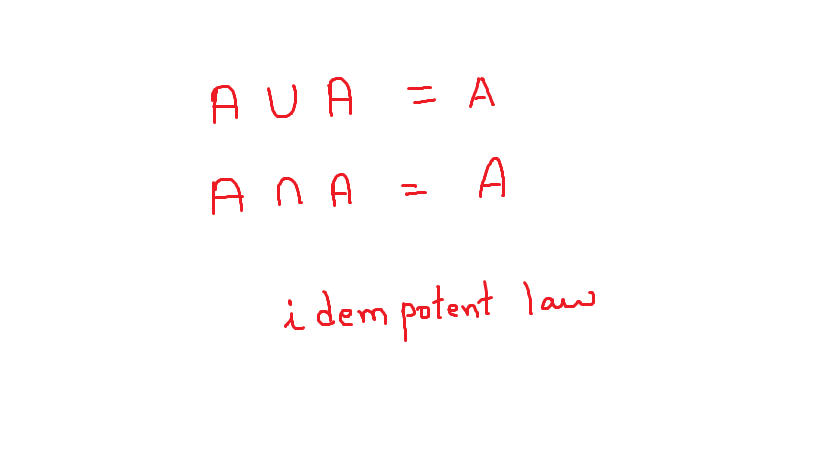 A ∪ A = A
A ∩ A = A
idempotent law